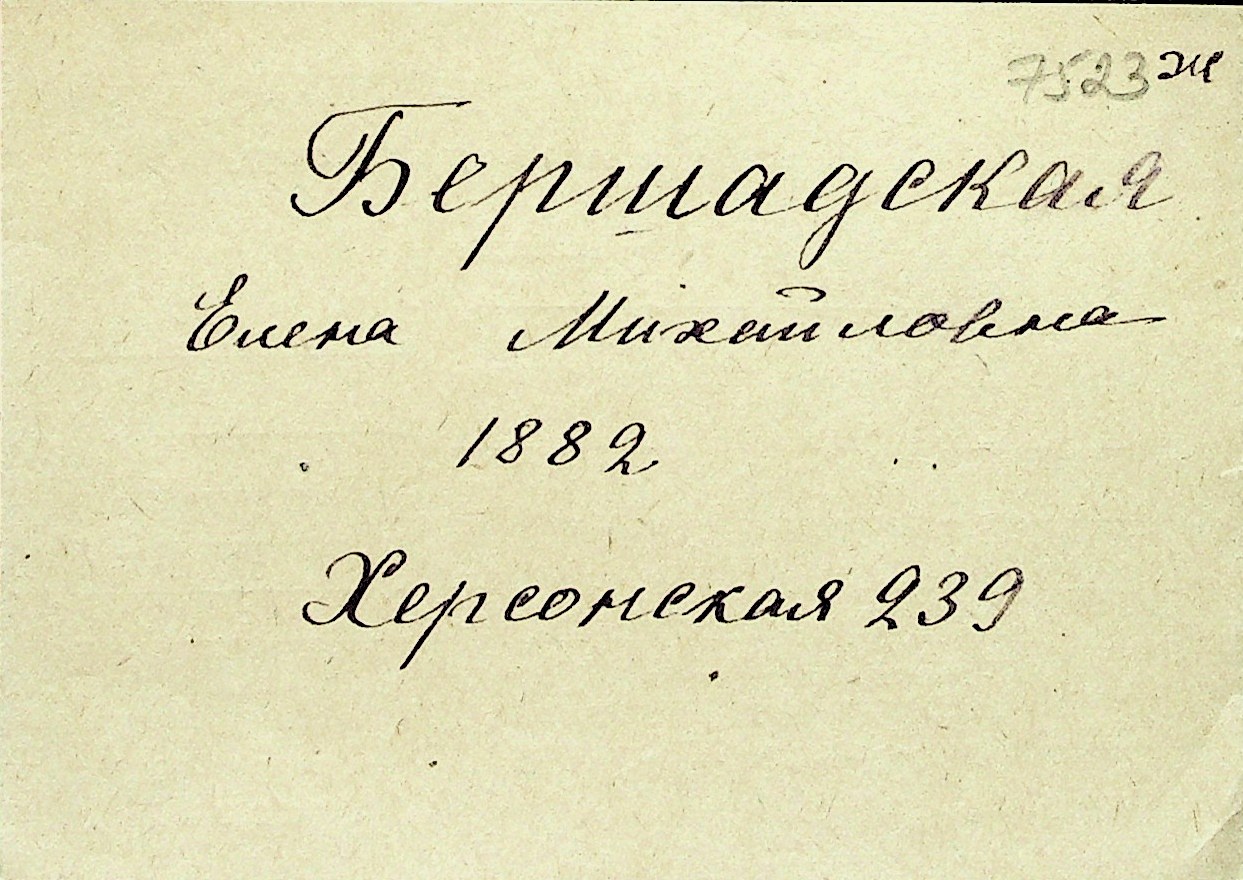 7523 ж
Бершадская
Елена Михайловна
1882
Херсонская 239